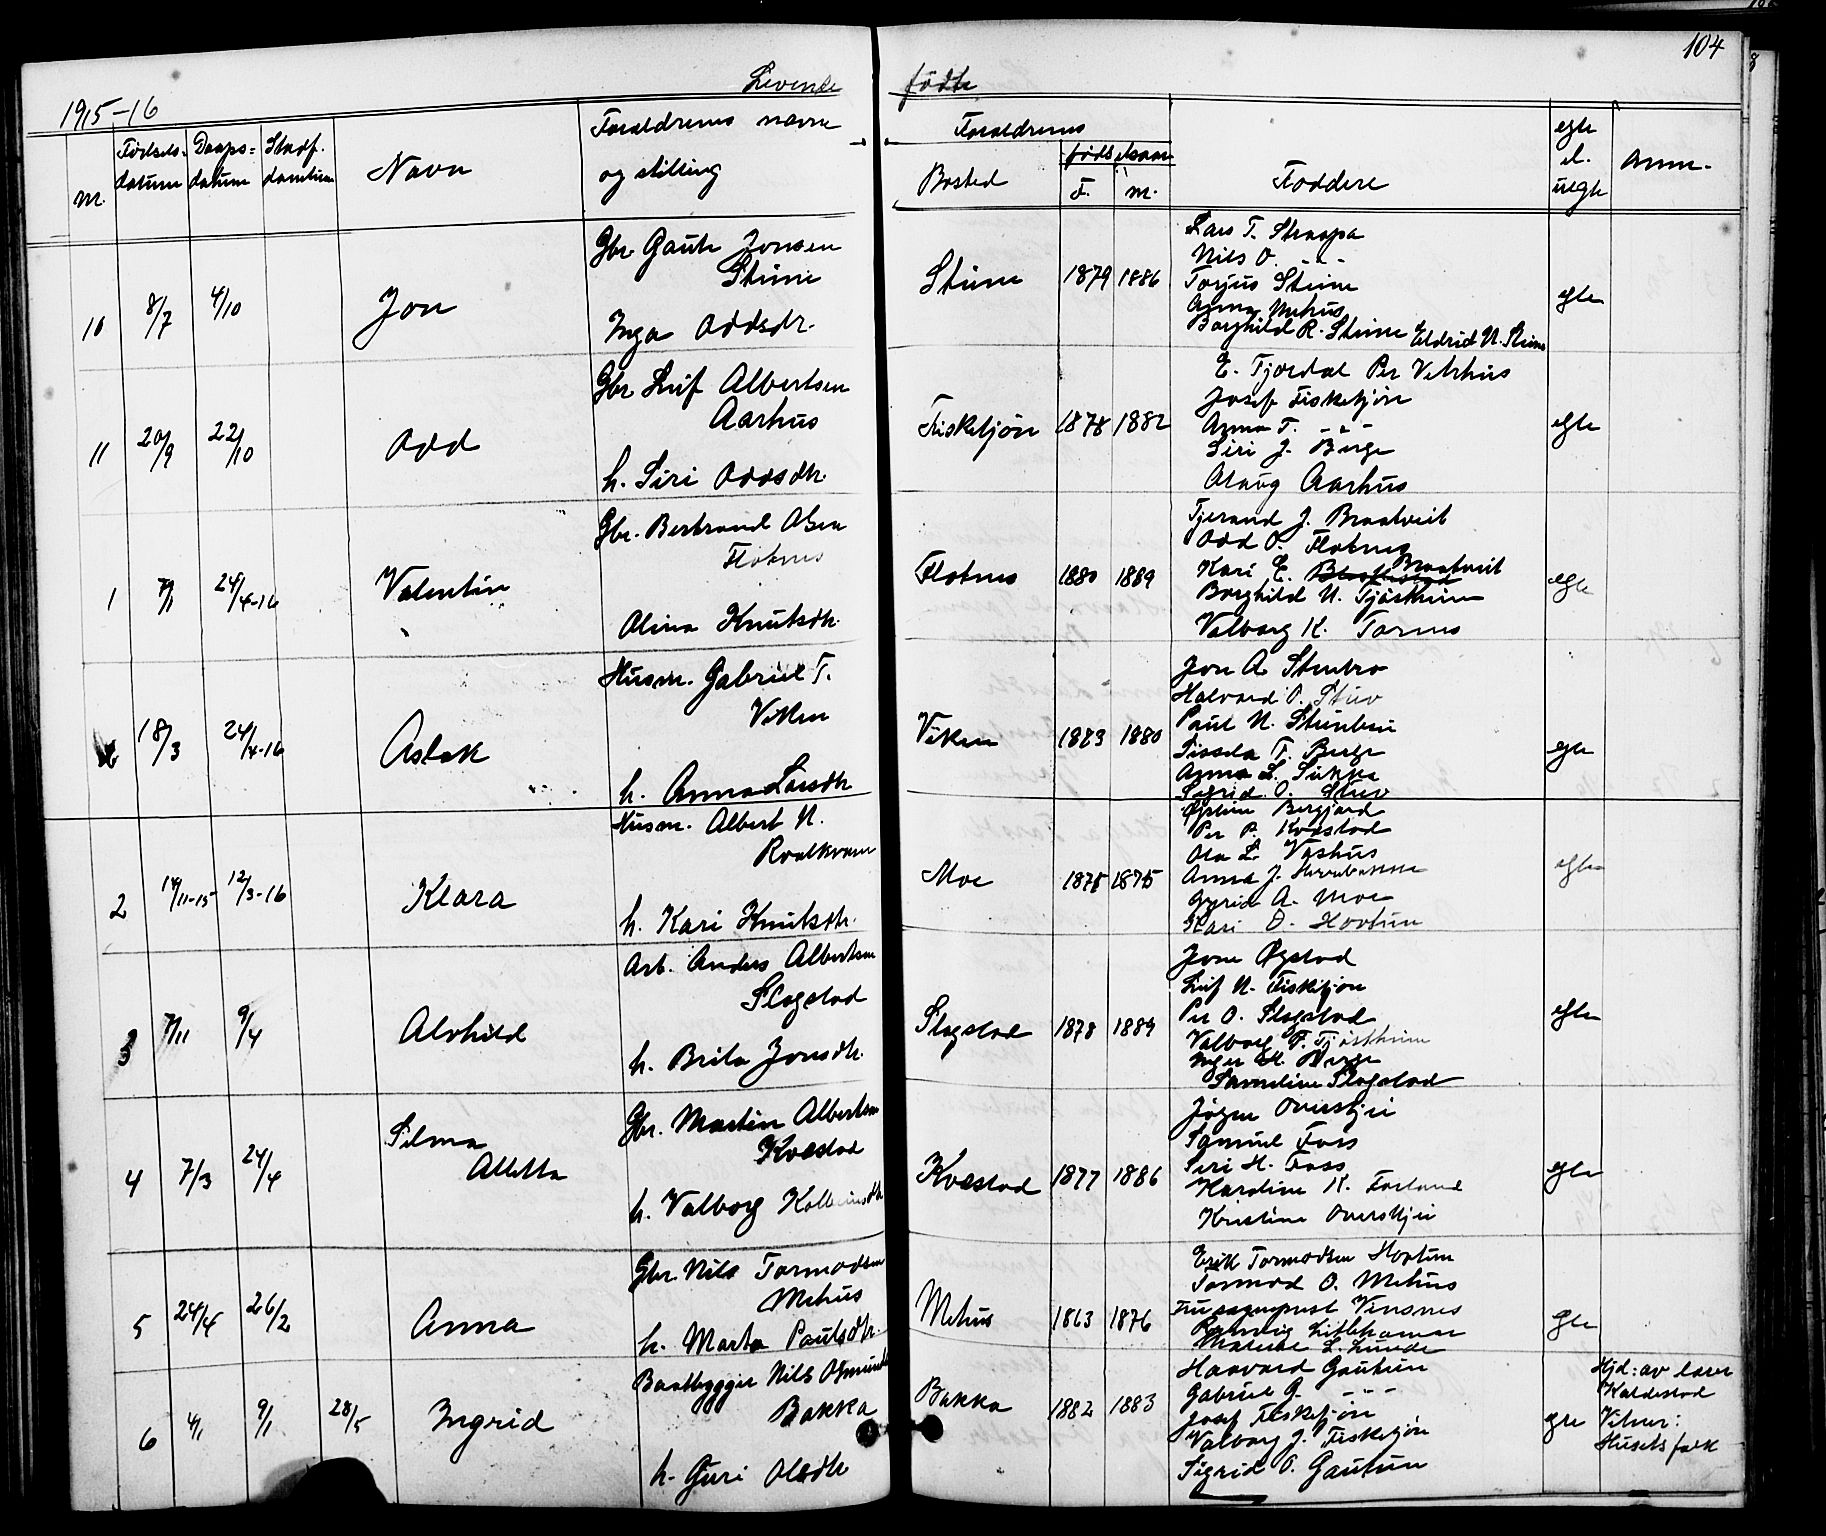 104
1915-16 Levende fødte
m. Fødsels-datum Daaps-datum Stadf. datum Navn Forældrenes navne og stilling
Forældrenes Bosted fødselsaar F. M. Faddere egte el. uegte Anm.
10 8/7 4/10 Jon
Gbr. Gaute Jonsen
Steine
Inga Oddsdtr.
Steine 1879 1886
Lars T. Straapa
Nils O. - - -
Torjus Steine
Anna Mehus
Borghild R. Steine Eldrid N. Steine
egte
11 20/9 22/10 Odd
Gbr Leif Albertsen
Aarhus
h. Siri Oddsdtr.
Fisketjøn 1878 1882
E. Fjordal Per Vetrhus
Josef Fisketjøn
Anna T. - " -
Siri J. Berge
Olaug Aarhus
egte
1 7/1 24/4-16 Valentin
Gbr. Bertrand Olsen
Flotnes
Olina Knutsdtr.
Flotnes 1880 1889
Tjerand J. Braatveit
Odd O. Flotnes
Kari E. Braatveit
Borghild N. Tjøstheim
Valborg K. Tornes
egte
18/3 24/4-16 Aslak
Husm. Gabriel T.
Viken
h. Anna Larsdtr
Viken 1883 1880
Jon A. Stenbro
Halvard O. Stuv
Paul N. Steinbru
Sissela T. Berge
Anna L. Sukka
Sigrid O. Stuv
egte
2 14/11-15 12/3-16 Klara
Husm. Albert N.
Roalkvam
h. Kari Knutsdtr.
Moe 1875 1875
Øystein Bergjord
Per P. Kvæstad
Ola L. Vashus
Anna J.
Gyrid A. Moe
Kari O. Hovtun
egte
3 7/11 9/4 Alvhild
Arb. Anders Albertsen
Slogstad
h. Brita Jonsdtr.
Slogstad 1878 1889
Jone Øgstad
Leif N. Fisketjøn
Per O. Slogstad
Valborg T. Tjøstheim
Inger H. Berge
Samueline Slogstad
egte
4 7/3 24/4 Selma
Alletta
Gbr. Martin Albertsen
Kvæstad
h. Valborg Kolbeinsdtr
Kvæstad 1877 1886
Jørgen Overskjei
Samuel Foss
Siri H. Foss
Hardine K. Forland
Kristine Overskjei
egte
5 24/4 26/2 Anna
Gbr. Nils Tormodsen
Mehus
h. Marta Paulsdtr.
Mehus 1863 1876
Erik Tormodsen Hovtun
Tormod O. Mehus
Fru sogneprest Vinsnes
Ragnvig Lillehamar
L. Lunde
egte
6 4/1 9/1 28/5 Ingrid
Baatbygger Nils Osmunds
Bakka
h. Guri Olsdtr
Bakka 1882 1883
Haavard Gautun
Gabriel G. - - -
Josef Fisketjøn
Valborg J. Fisketjøn
Sigrid O. Gautun
egte
Hjd: av lærer
Kaldestad
Vitner:
Husets folk